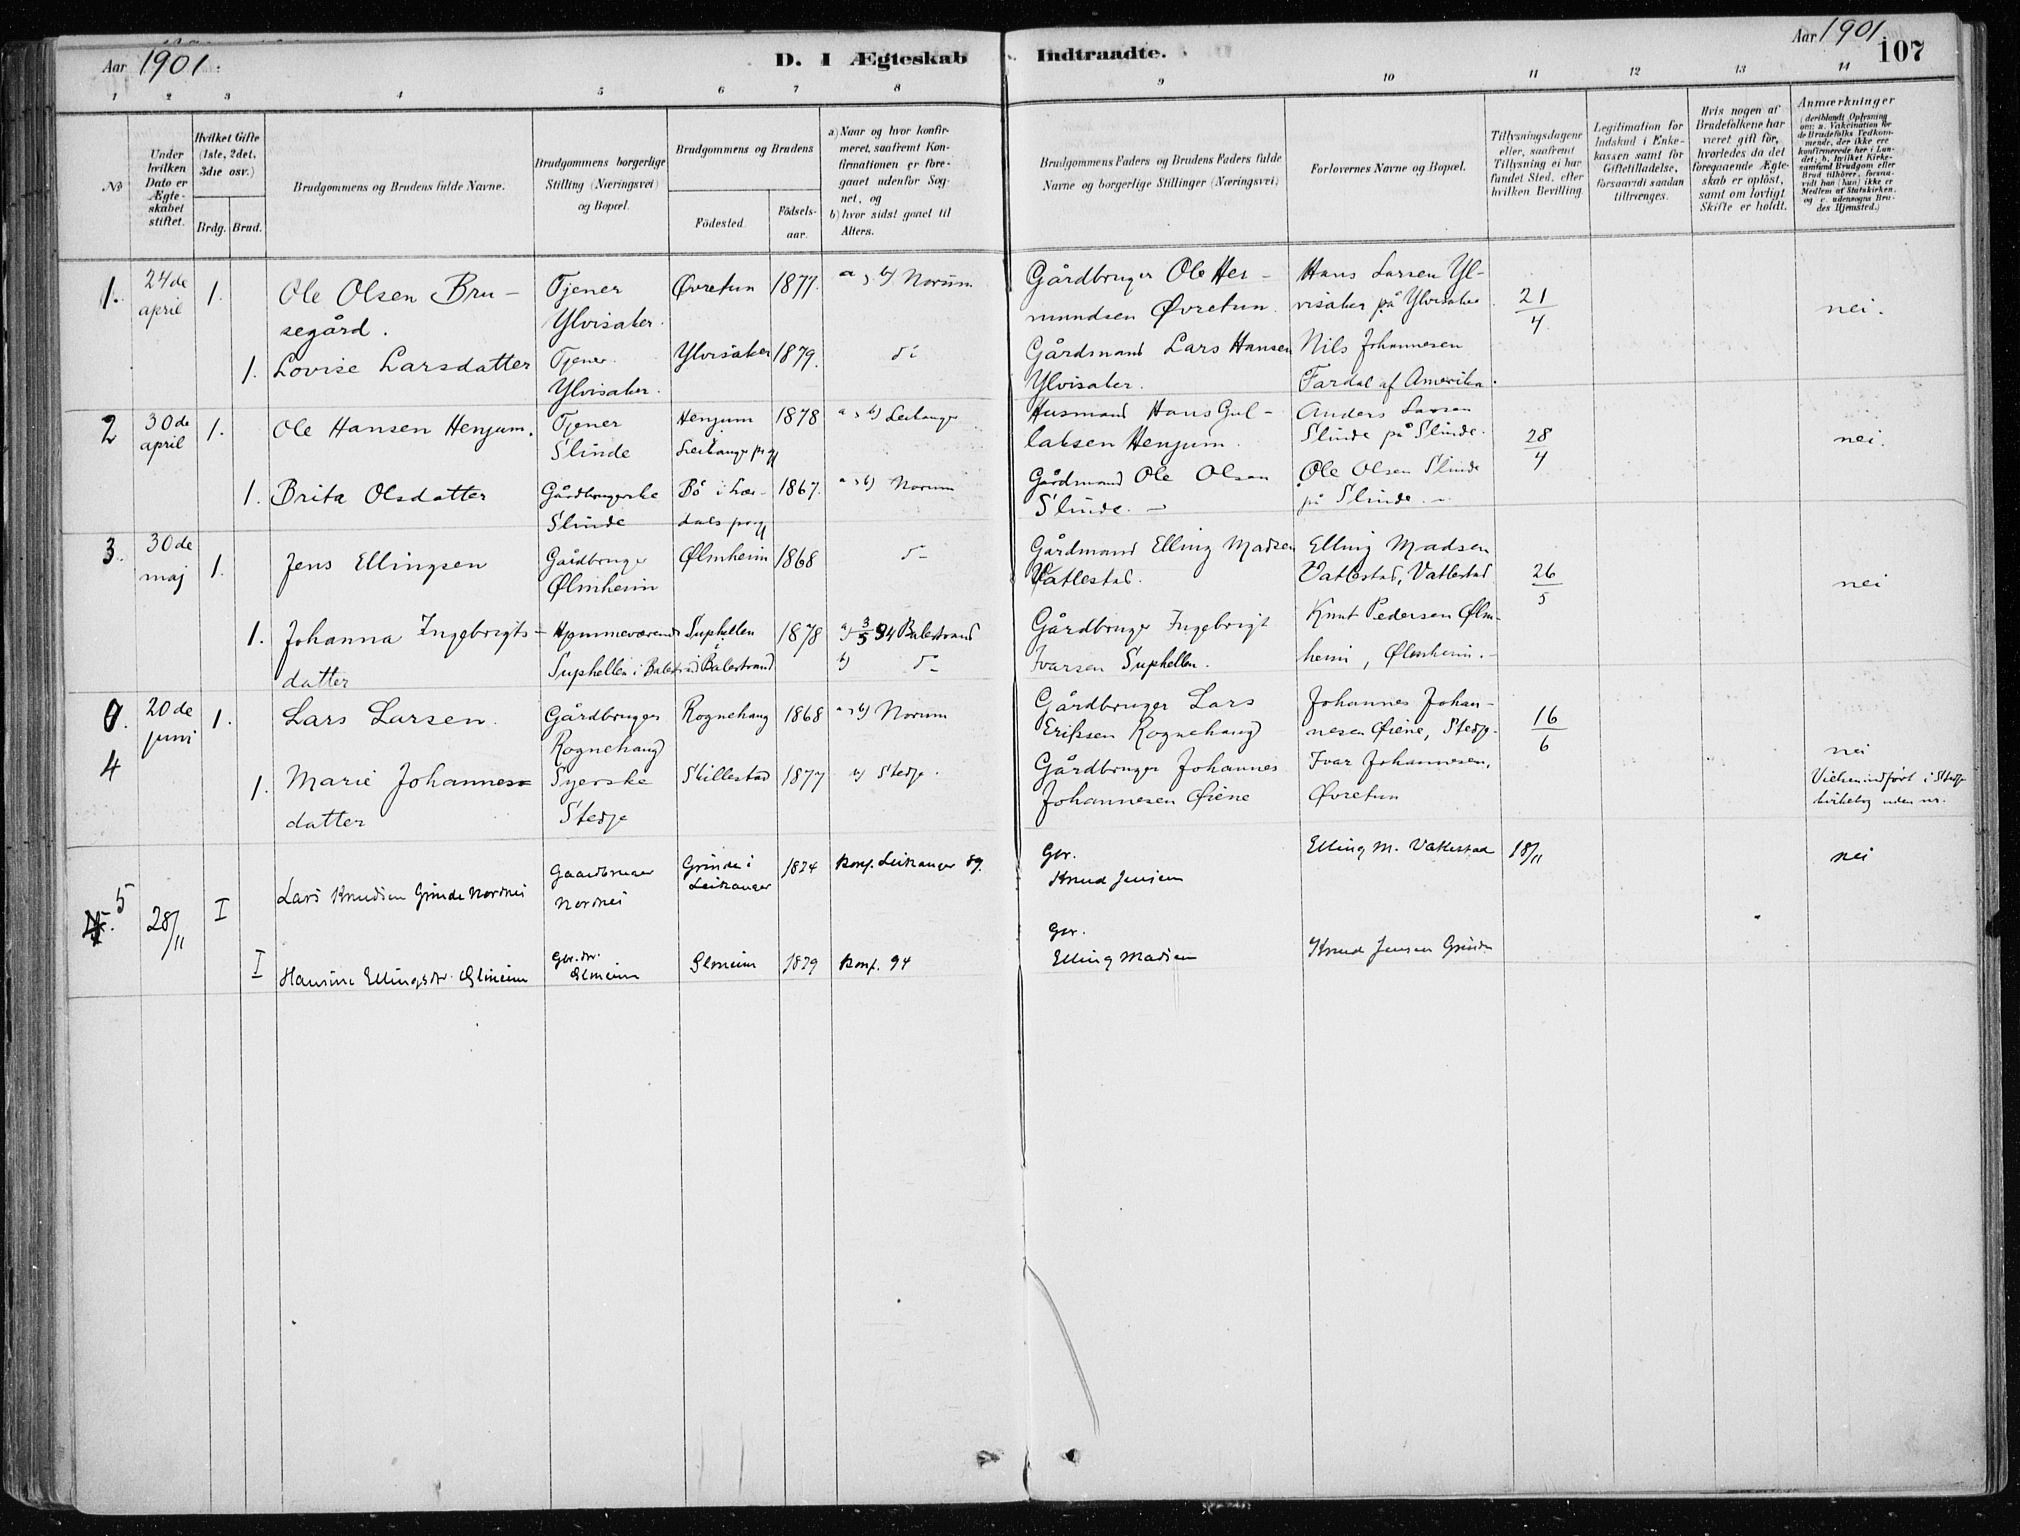 Aar 1901.
D. I Ægteskab Indtraadte.
Aar 1901
107
1 2 3 4 5 6 7 8 9 10 11 12 13 14
No
Under hvilken Dato er Ægte-skabet stiftet.
Hvilket Gifte (1ste, 2det, 3die osv.)
Brdg. Brud.
Brudgommens og Brudens fulde Navne.
Brudgommens borgerlige Stilling (Næringsvei) og Bopæl.
Brudgommens og Brudens
Födested. Födsels-aar.
a) Naar og hvor konfir-meret, saafremt Kon-firmationen er fore-gaaet udenfor Sog-net, og
b) hvor sidst gaaet til Alters.
Brudgommens Faders og Brudens Faders fulde Navne og borgerlige Stillinger (Næringsvei)
Forlovernes Navne og Bopæl.
Tillysningsdagene eller, saafremt Tillysning ei har fundet Sted, efter hvilken Bevilling.
Legitimation for Indskud i Enke-kassen samt for Giftetilladelse, forsaavidt saadan tiltrænges.
Hvis nogen af Brudefolkene har været gift för, hvorledes da det foregaaende Ægte-skab er oplöst, samt om lovligt Skifte er holdt.
Anmærkninger (deriblandt Oplysning om: a. Vakcination for de Brudefolks Vedkom-mende, der ikke ere konfirmerede her i Lan-det; b. hvilket Kirke-samfund Brudgom eller Brud tilhörer, forsaa-vidt han (hun) ikke er Medlem af Statskirken, og c. udensogns Bru-des Hjemsted.)
1. 24de april 1. Ole Olsen Bru-segård. Tjener Ylvisaker. Øvretun 1877. a, b) Norum Gårdbruger Ole Her-mundsen Øvretun. Hans Larsen Yl-visaker på Ylvisaker 21/4. nei.
1. Lovise Larsdatter Tjener Ylvisaker. Ylvisaker 1879. do Gårdmand Lars Hansen Ylvisaker. Nils Johannesen Fardal af Amerika.
2 30de april 1. Ole Hansen Henjum. Tjener Slinde Henjum Leikanger prgj 1878 a, b) Leikanger Husmand Hans Gul-laksen Henjum. Anders Larsen Slinde på Slinde. 28/4 nei.
1. Brita Olsdatter Gårdbrugerske Slinde Bö i Lær-dals prgj 1867. a, b) Norum Gårdmand Ole Olsen Slinde. – Ole Olsen Slinde på Slinde. –
3. 30de maj 1. Jens Ellingsen Gårdbruger Ølmheim Ølmheim 1868 do Gårdmand Elling Madsen Vatlestad. Elling Madsen Vatlestad, Vatlestad 26/5 nei
1. Johanna Ingebrigts-datter Hjemmeværende Suphellen i Balestrand Suphellen Balestrand 1878 a) 3/5 94 Balestrand b) do Gårdbruger Ingebrigt Ivarsen Suphellen. Knut Pedersen Ølm-heim, Ølmheim. –
4 20de juni 1. Lars Larsen. Gårdbruger Rognehaug Rognehaug 1868 a, b) Norum Gårdbruger Lars Erikssen Rognehaug Johannes Johan-nesen Øiene, Stedje. 16/6 nei
1. Marie Johannes-datter Syerske Stedje Skillestad 1877 b) Stedje. Gårdbruger Johannes Johannesen Øiene Ivar Johannesen, Øvretun Vielsen indført i Stedje kirkebog uden nr.
5 28/11 I Lars Knudsen Grinde Nordnes Gaardbruger Nordnes Grinde i Leikanger 1874 Konf. Leikanger 89. Gbr. Knud Jensen Elling M. Vatlestad 18/11 nei
I Hansine Ellingsdr. Ølmeim Gbr. dr. Ølmeim Ølmeim 1879 Konf. 94 Gbr. Elling Madsen Knud Jensen Grinde